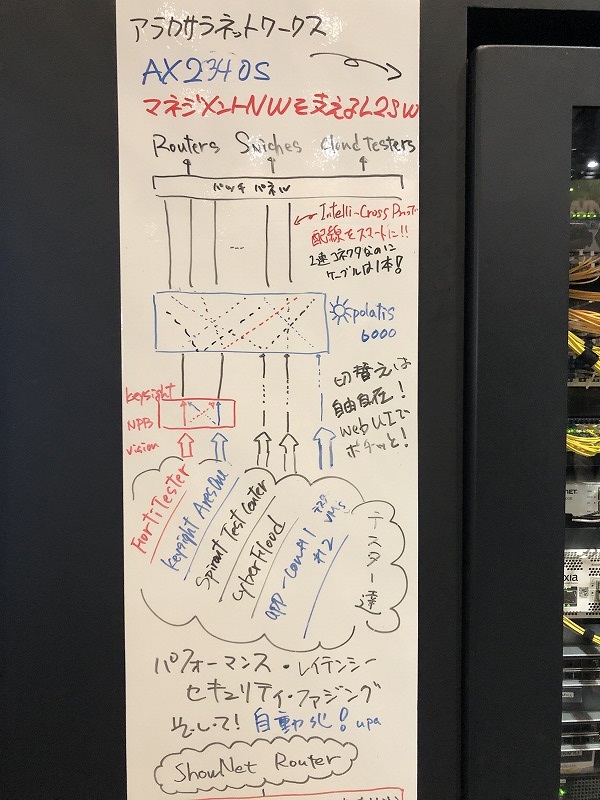 アラクサラネットワークス
AX2340S
マネジメントNWを支えるL2SW
Routers Swiches Cloud Testers
パッチパネル
Intelli-Cross Pro
配線をスマートに!!
2連コネクタなのに
ケーブルは1本!
polatis
6000
切替えは
自由自在!
Web UIで
ポチッと!
keysight
NPB
vision
FortiTester
keysight AresOne
Spirent Test Center
CyberFlood
app-cont#1
#2
テスタ
VM's
テスター達
パフォーマンス・レイテンシー
セキュリティ・ファジング
そして! 自動化! upa
ShowNet Router
xia